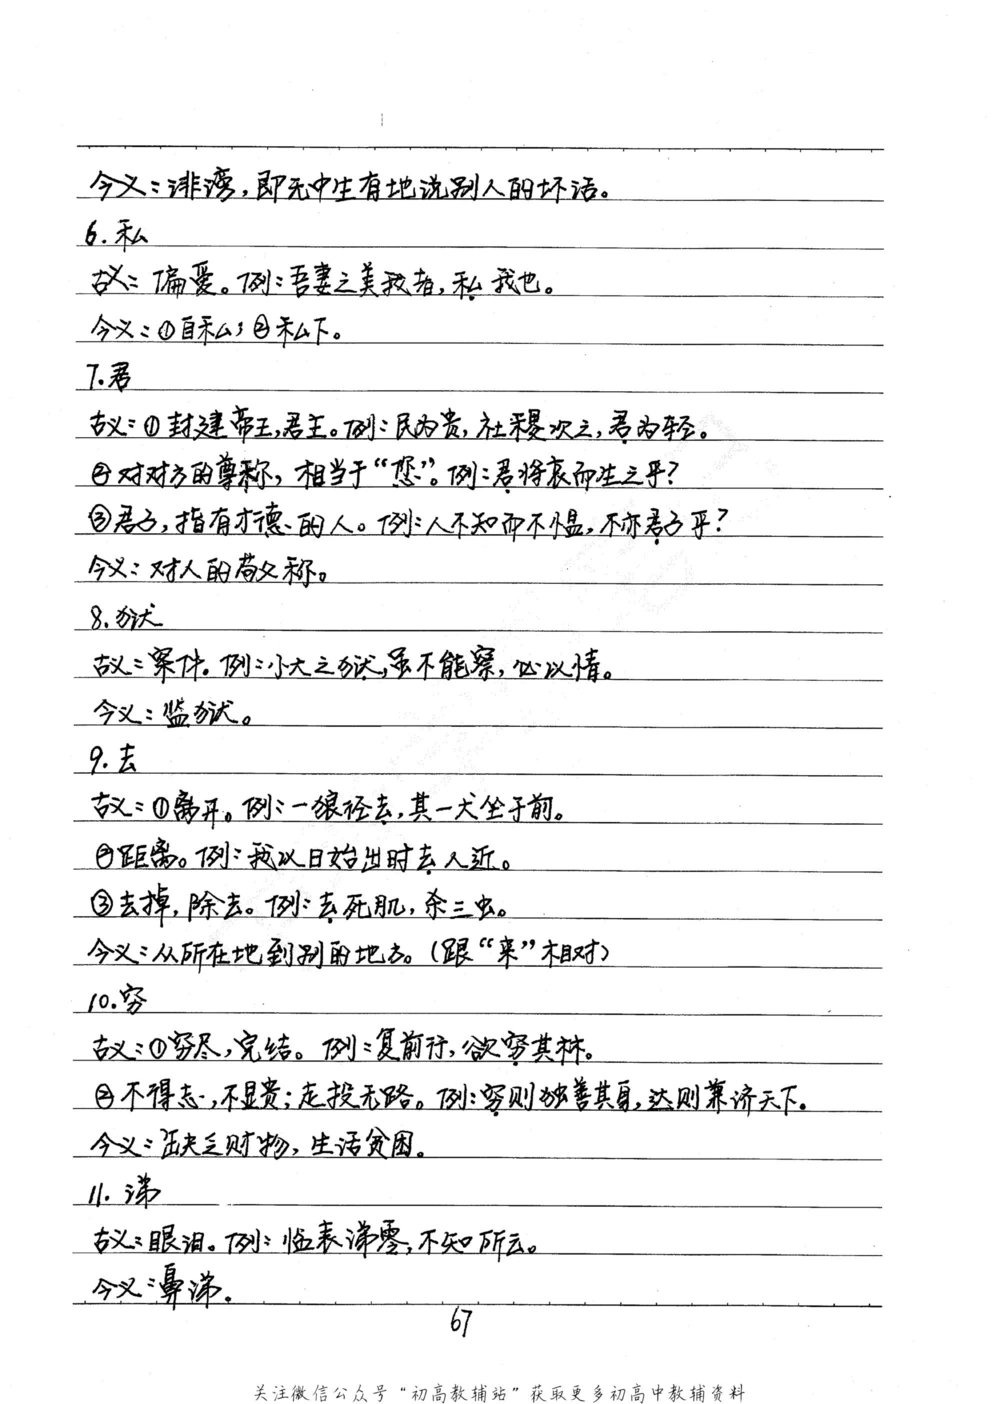 今义：诽谤，即无中生有地说别人的坏话。
6.私
古义：偏爱。例：吾妻之美我者，私我也。
今义：①自私；②私下。
7.君
古义：①封建帝王，君主。例：民为贵，社稷次之，君为轻。
②对对方的尊称，相当于“您”。例：君将哀而生之乎？
③君子，指有才德的人。例：人不知而不愠，不亦君子乎？
今义：对人的尊称。
8.狱
古义：案件。例：小大之狱，虽不能察，必以情。
今义：监狱。
9.去
古义：①离开。例：一狼径去，其一犬坐于前。
②距离。例：我以日始出时去人近。
③去掉，除去。例：去死肌，杀三虫。
今义：从所在地到别的地方。（跟“来”相对）
10.穷
古义：①穷尽，完结。例：复前行，欲穷其林。
②不得志，不显贵；走投无路。例：穷则独善其身，达则兼济天下。
今义：缺乏财物，生活贫困。
11.涕
古义：眼泪。例：临表涕零，不知所云。
今义：鼻涕。
67
关注微信公众号“初高教辅站”获取更多初高中教辅资料